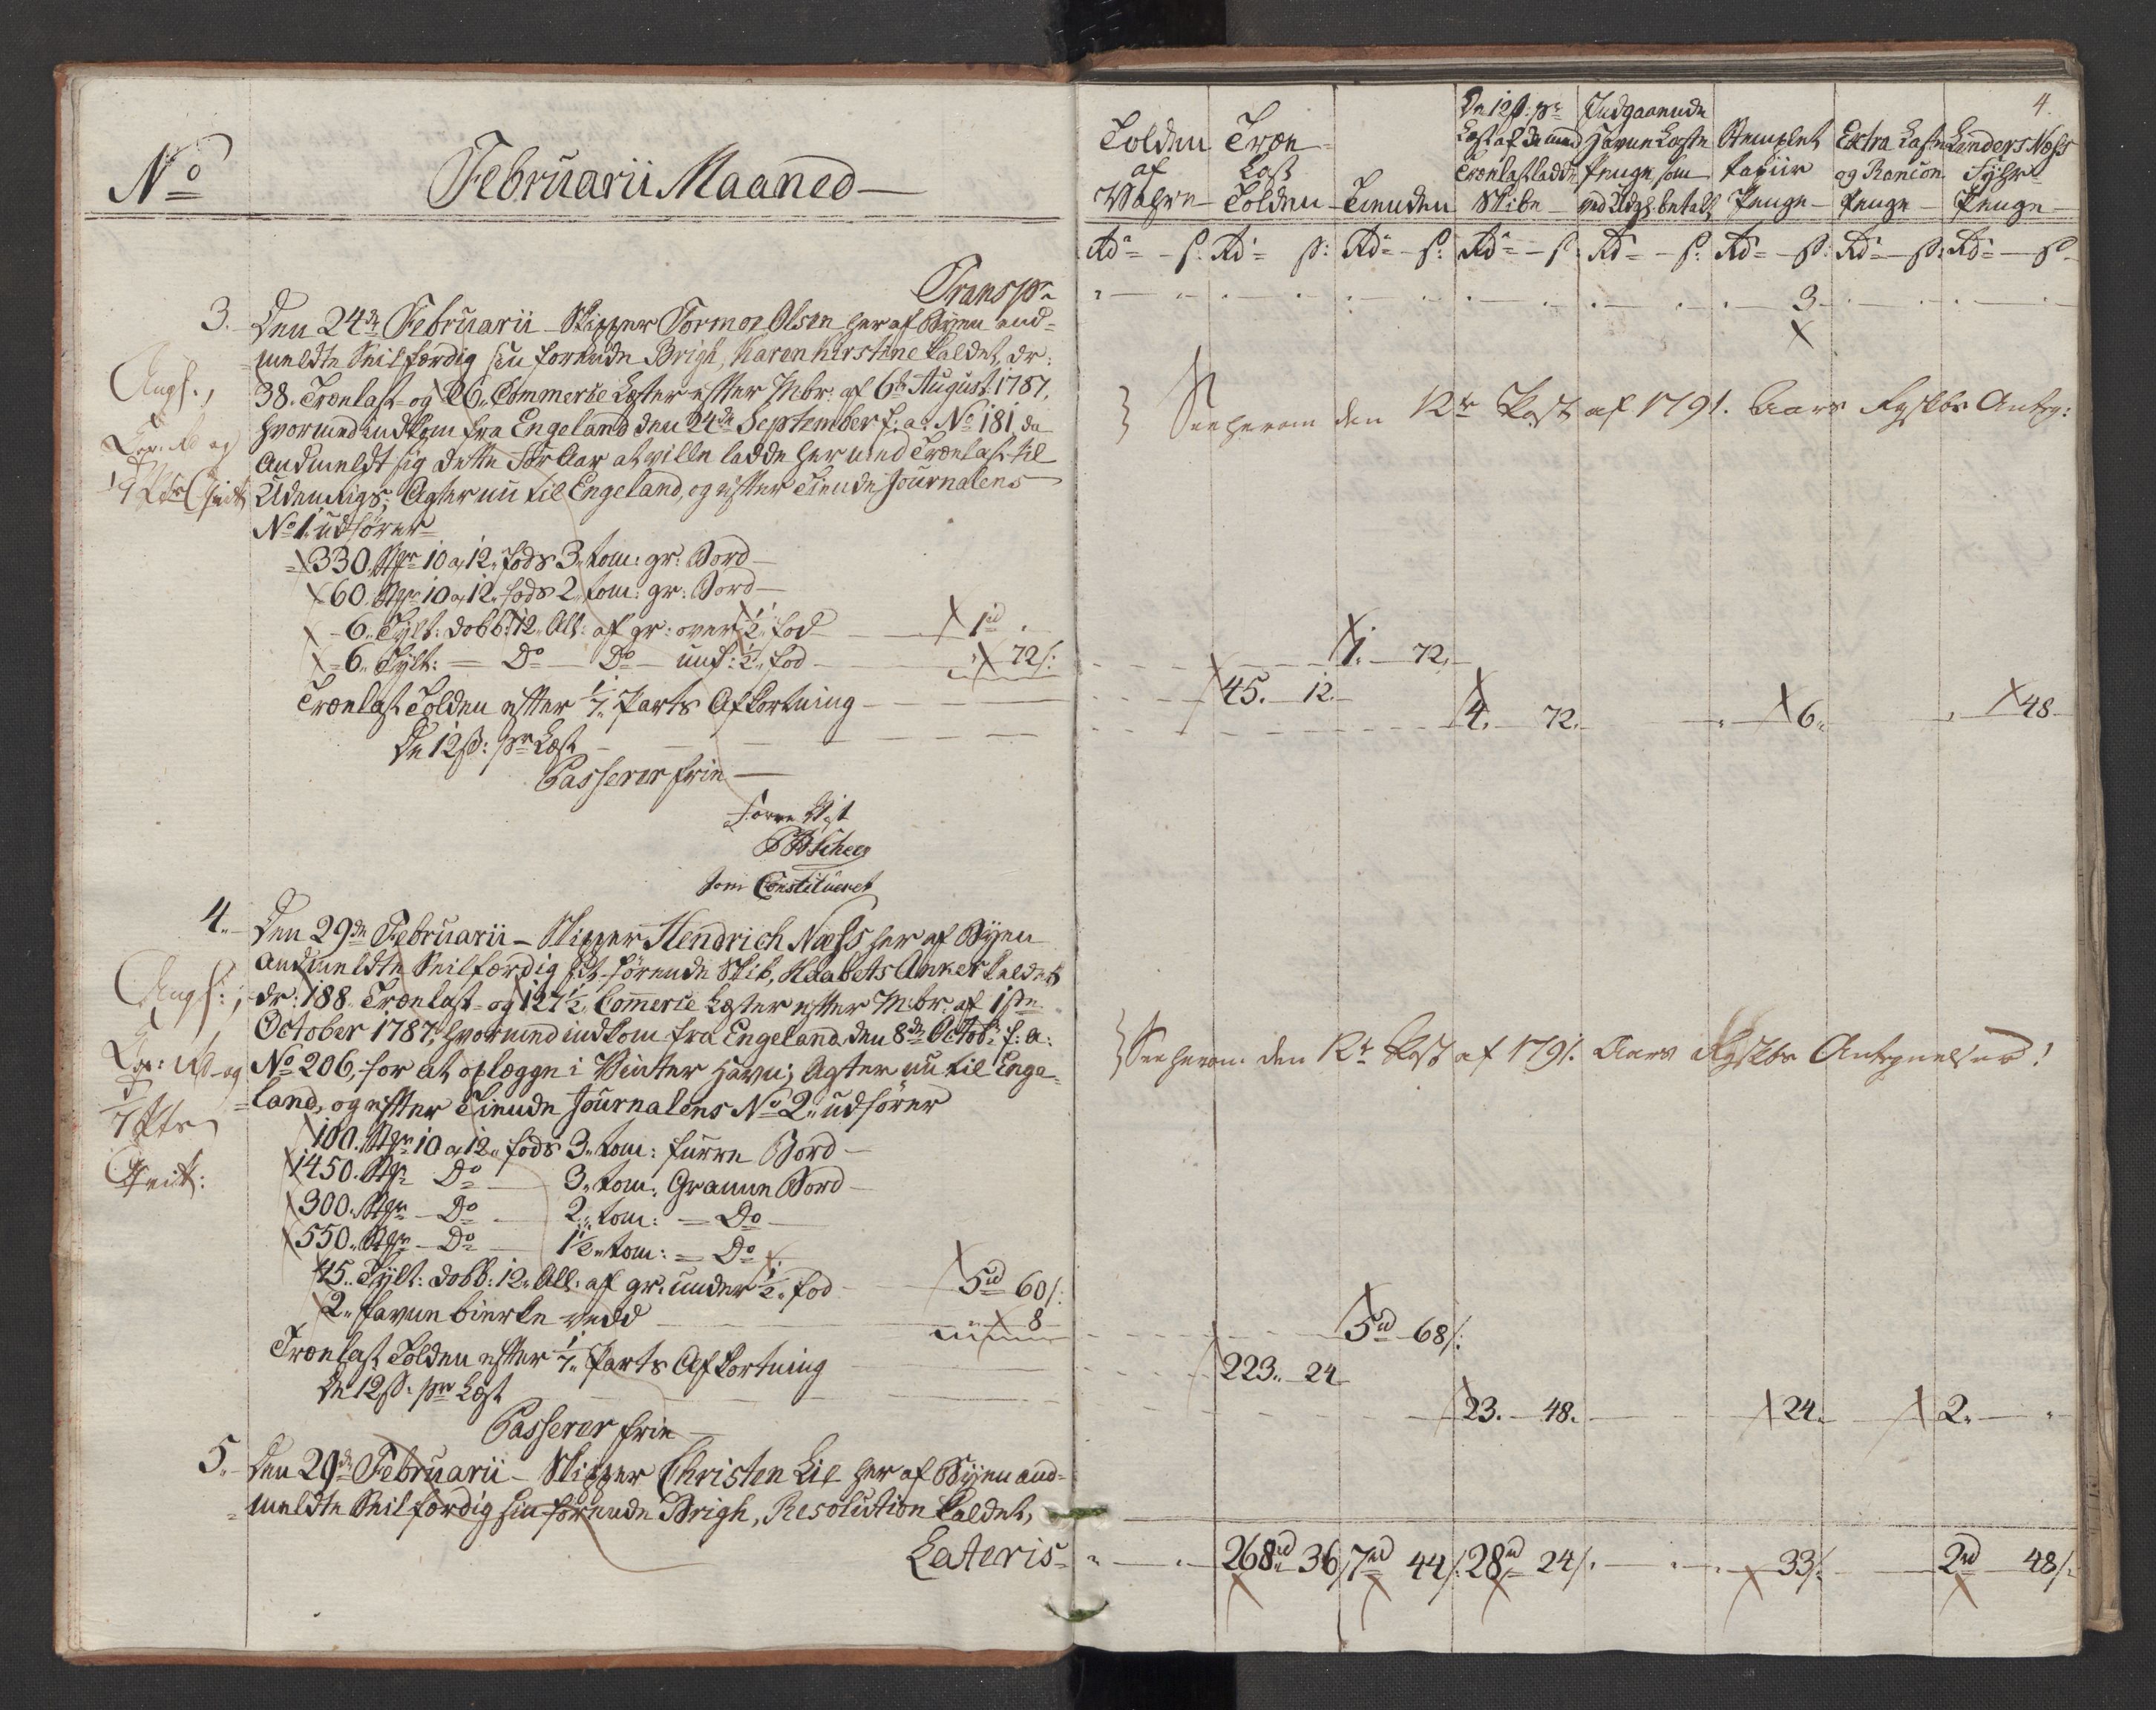 No
Februarii Maaned
Transp:
3. Den 24de Februarii Skipper Tormoe Olsen her af Byen and=
meldte Seilfærdig sin førende Brigh, Karen Kirstine kaldet, dr:
38. Trælast og 26 Commerce Læster efter Mbr: af 6te August 1787,
hvormed indkom fra Engeland den 24de September f: a: No 181, da
andmeldt sig dette For Aar at ville ladde her med Trælast til
Udenrigs; Agter nu til Engeland, og efter Tiende Journalens
No 1. udfører
330. St: 10 a 12 fods 3 tom: gr: Bord
60. St: 10 a 12 fods 2 tom: gr: Bord
6. Tylt: dobb: 12 All: af gr: over ½ fod 1rd
6. Tylt: Do Do und: ½ fod 72s:
Trælast Tolden efter 1/7 Parts Afkortning
De 12s: pr Læst
Passerer frie
som Constitueret
4. Den 29de Februarii Skipper Hendrich Næss her af Byen
andmeldte Seilfærdig sit førende Skib, Haabets Anker kaldet
dr: 188 Trælast og 127½ Commerce Læster efter Mbr: af 1ste
October 1787, hvormed indkom fra Engeland den 8de Octobr f: a:
No 206, for at oplægge i Vinter Havn; Agter nu til Enge=
land, og efter Tiende Journalens No 2 udfører
100. St: 10 a 12 fods 3 tom: furre Bord
1450. St: Do 3 tom: Granne Bord
300. St: Do 2 tom: Do
550. St: Do 1½ tom: Do
45. Tylt: dobb: 12 All: af gr: under ½ fod 5rd 60s:
2 favne bierke vedd 8
Trælast Tolden efter 1/7 Parts Afkortning
De 12s: pr Læst
Passerer frie
5. Den 29de Februarii Skipper Christen Lie her af Byen and=
meldte Seilfærdig sin førende Brigh, Resolution kaldet,
Lateris
4.
Tolden af Wahre
Træ Last Tolden
Tienden
De 12s: pr Læst af de med Trælast ladde Skibe
Indgaaende Havne Laste Penge, som ved Udg: betalt
Stemplet Papiir Penge
Extra Laste og Rancon Penge
Lindersnæss Fyhr Penge
Rd s: Rd s: Rd s: Rd s: Rd s: Rd s: Rd s: Rd s:
3
See herom den 12te Post af 1791. Aars
1. 72.
45. 12.
4. 72. 6. 48
See herom den 12te Post af 1791. Aars
5rd 68s:
223. 24
23. 48. 24. 2.
268rd 36 7rd 44s: 28rd 24s: 33s: 2rd 48s: